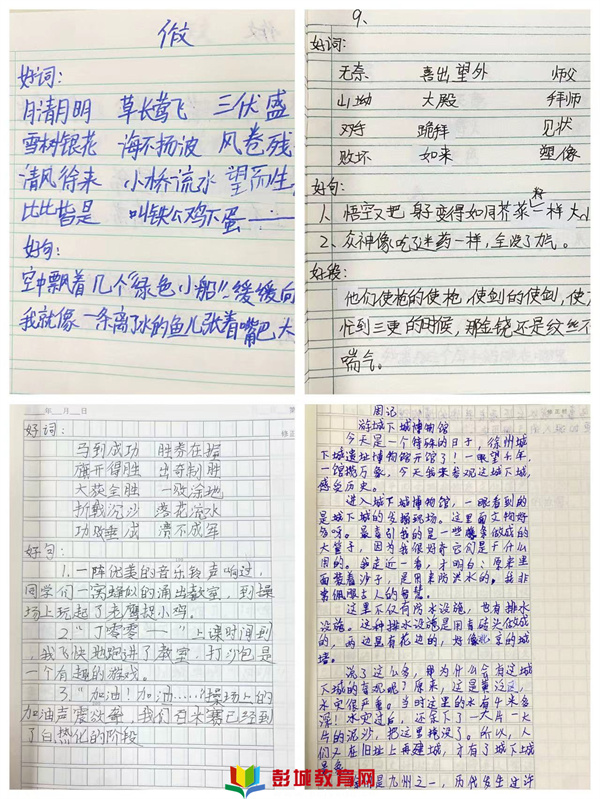 作文
好词:
月清月明 草长莺飞 三伏盛
雪树银花 海不扬波 风卷残
清风徐来 小桥流水 望而生
比比皆是 叫铁公鸡下蛋……
好句:
空中飘着几个“绿色小船”,缓缓向
我就像一条离了水的鱼儿张着嘴巴大
9、
好词:
无奈 喜出望外 师父
山坳 大殿 拜师
对手 跪拜 见状
败坏 如来 塑像
好句:
1、悟空又把身子变得如同芥菜籽一样大
2、众神像吃了迷药一样,全没了力气。
好段:
他们使枪的使枪,使剑的使剑,使
忙到三更的时候,那金铙还是纹丝不
喘气。
年 月 日
好词:
马到成功 胜券在握
旗开得胜 出奇制胜
大获全胜 一败涂地
折戟沉沙 落花流水
功败垂成 溃不成军
好句:
1.一阵优美的音乐铃声响过,
同学们一窝蜂似的涌出教室,到操
场上玩起了老鹰捉小鸡。
2.“丁零零——”上课时间到
,我飞快地跑进了教室,打沙包是
一个有趣的游戏。
3.“加油!加油……”操场上的
加油声震欲聋,我们百米赛已经到
了白热化的阶段
周记
游城下城博物馆
今天是一个特殊的日子,徐州城
下城遗址博物馆开馆了!一眼望千年,
一馆揽万象,今天我来参观这城下城,
感受历史。
进入城下城博物馆,一眼看到的
是城下城的发掘现场。这里面文物好
多呀。最吸引我的是一些藤条做成的
大筐子,因为我很好奇它们是干什么
用的。我走近一看,才明白:原来里
面装着沙子,是用来防洪水的。我非
常佩服古人的智慧。
这里不仅有防水设施,也有排水
设施。这种排水设施是用青砖头做成
的,两边是有花边的,好像北京的城
墙。
说了这么多,那为什么会有这城
下城的奇观呢?原来,这是黄泛区,
水灾很严重。当时这里的水有4米多
深!水灾过后,还余下了一大片一大
片的泥沙,把这里掩没了。所以,人
们又在旧址上再建城,才有了城下城
景象。
州是九州之一,历代发生过许
彭城教育网